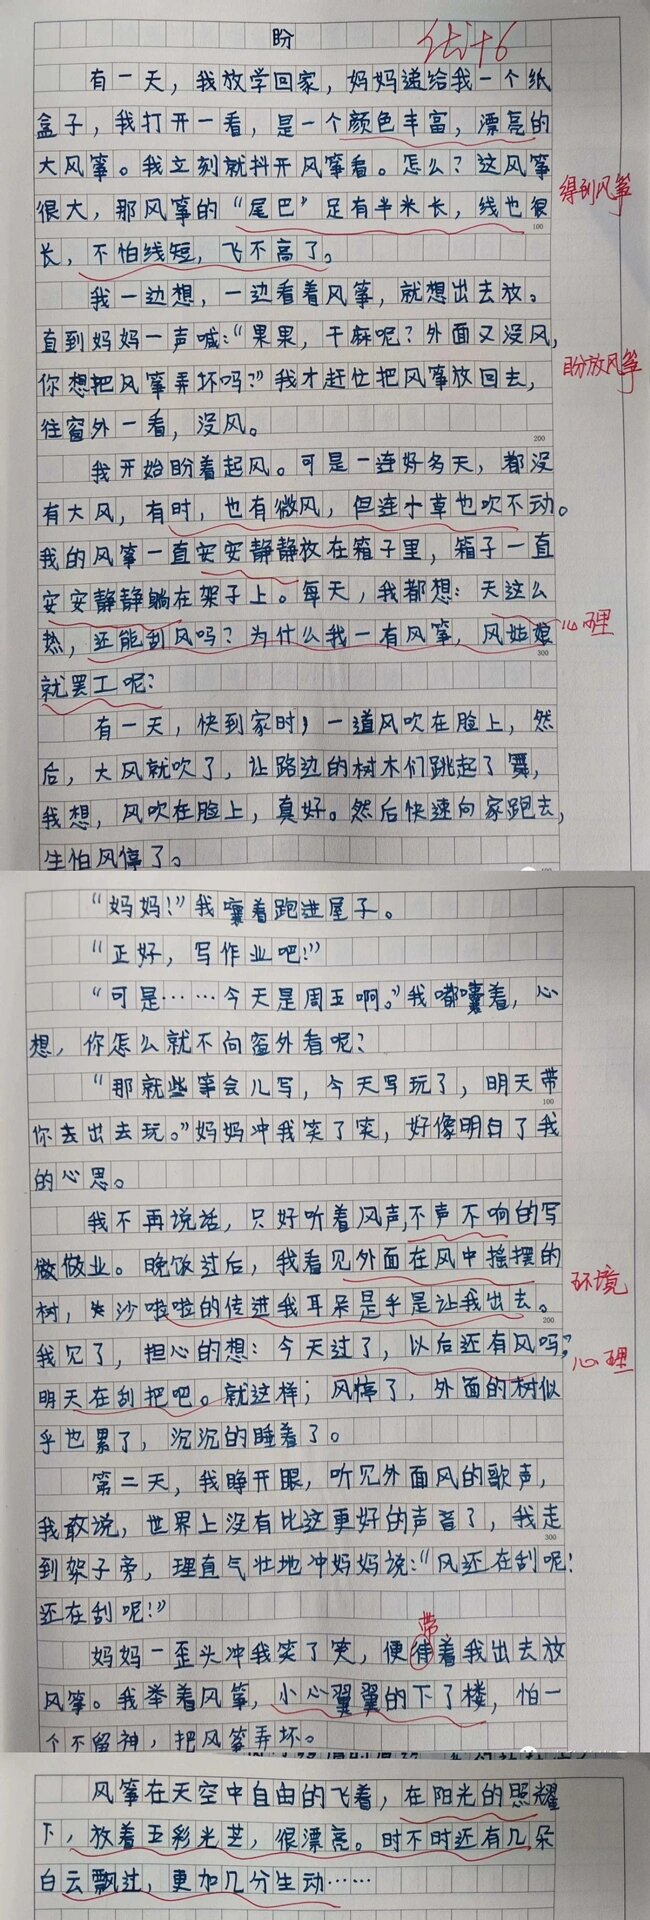 盼
优+6
有一天，我放学回家，妈妈递给我一个纸
盒子，我打开一看，是一个颜色丰富，漂亮的
大风筝。我立刻就抖开风筝看。怎么？这风筝
很大，那风筝的“尾巴”足有半米长，线也很
得到风筝
100
长，不怕线短，飞不高了。
我一边想，一边看着风筝，就想出去放。
直到妈妈一声喊：“果果，干麻呢？外面又没风，
盼放风筝
你想把风筝弄坏吗？”我才赶忙把风筝放回去，
往窗外一看，没风。
200
我开始盼着起风。可是一连好多天，都没
有大风，有时，也有微风，但连小草也吹不动。
我的风筝一直安安静静放在箱子里，箱子一直
安安静静躺在架子上。每天，我都想：天这么
热，还能刮风吗？为什么我一有风筝，风姑娘
心理
300
就罢工呢？
有一天，快到家时，一道风吹在脸上，然
后，大风就吹了，让路边的树木们跳起了舞，
我想，风吹在脸上，真好。然后快速向家跑去，
生怕风停了。
“妈妈！”我嚷着跑进屋子。
“正好，写作业吧！”
“可是……今天是周五啊。”我嘟囔着，心
想，你怎么就不向窗外看呢？
“那就些等会儿写，今天写玩了，明天带
100
你去出去玩。”妈妈冲我笑了笑，好像明白了我
的心思。
我不再说话，只好听着风声，不声不响的写
做业。晚饭过后，我看见外面在风中摇摆的
环境
树，沙啦啦的传进我耳朵是乎是让我出去。
200
我见了，担心的想：今天过了，以后还有风吗？
心理
明天在刮把吧。就这样；风停了，外面的树似
乎也累了，沉沉的睡着了。
第二天，我睁开眼，听见外面风的歌声，
我敢说，世界上没有比这更好的声音了，我走
300
到架子旁，理直气壮地冲妈妈说：“风还在刮呢！
还在刮呢！”
带
妈妈一歪头冲我笑了笑，便着我出去放
风筝。我举着风筝，小心翼翼的下了楼，怕一
个不留神，把风筝弄坏。
风筝在天空中自由的飞着，在阳光的照耀
下，放着五彩光芒，很漂亮。时不时还有几朵
白云飘过，更加几分生动……